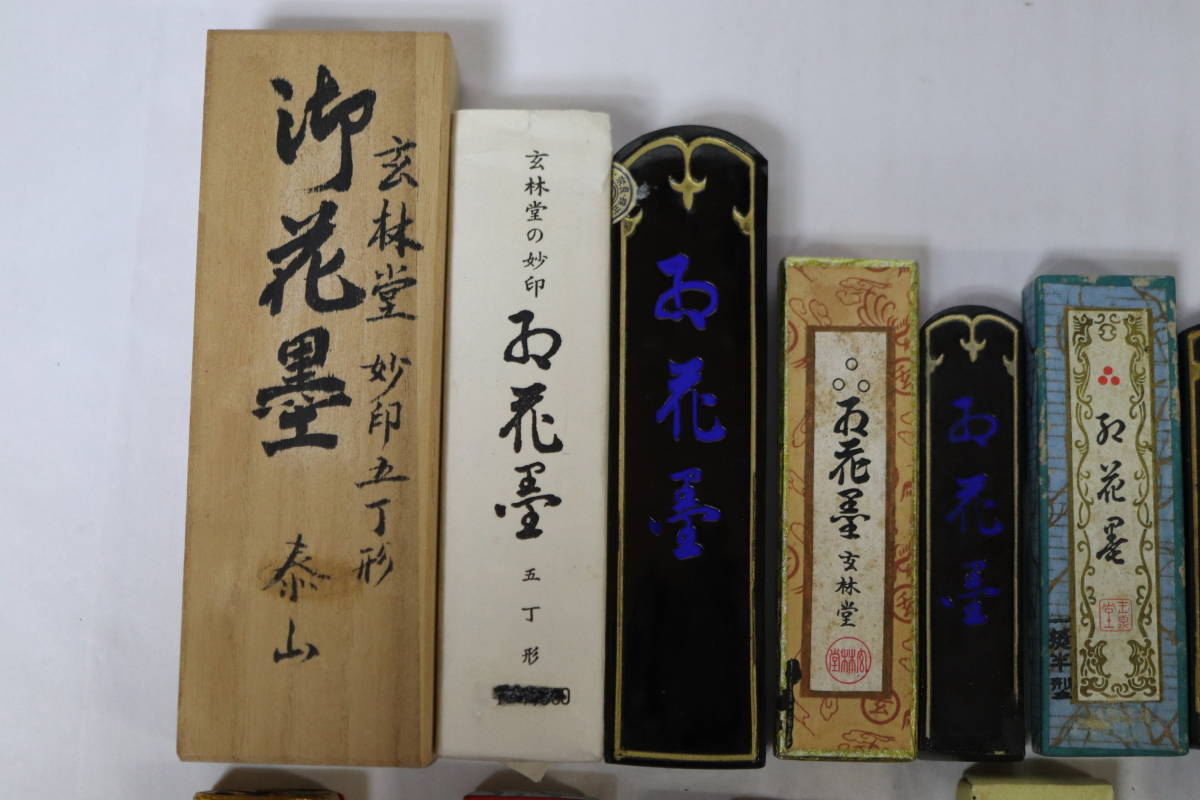 御花墨
玄林堂 妙印五丁形
泰山
玄林堂の妙印
御花墨
五丁形
御花墨
御花墨
玄林堂
玄林堂
御花墨
御花墨